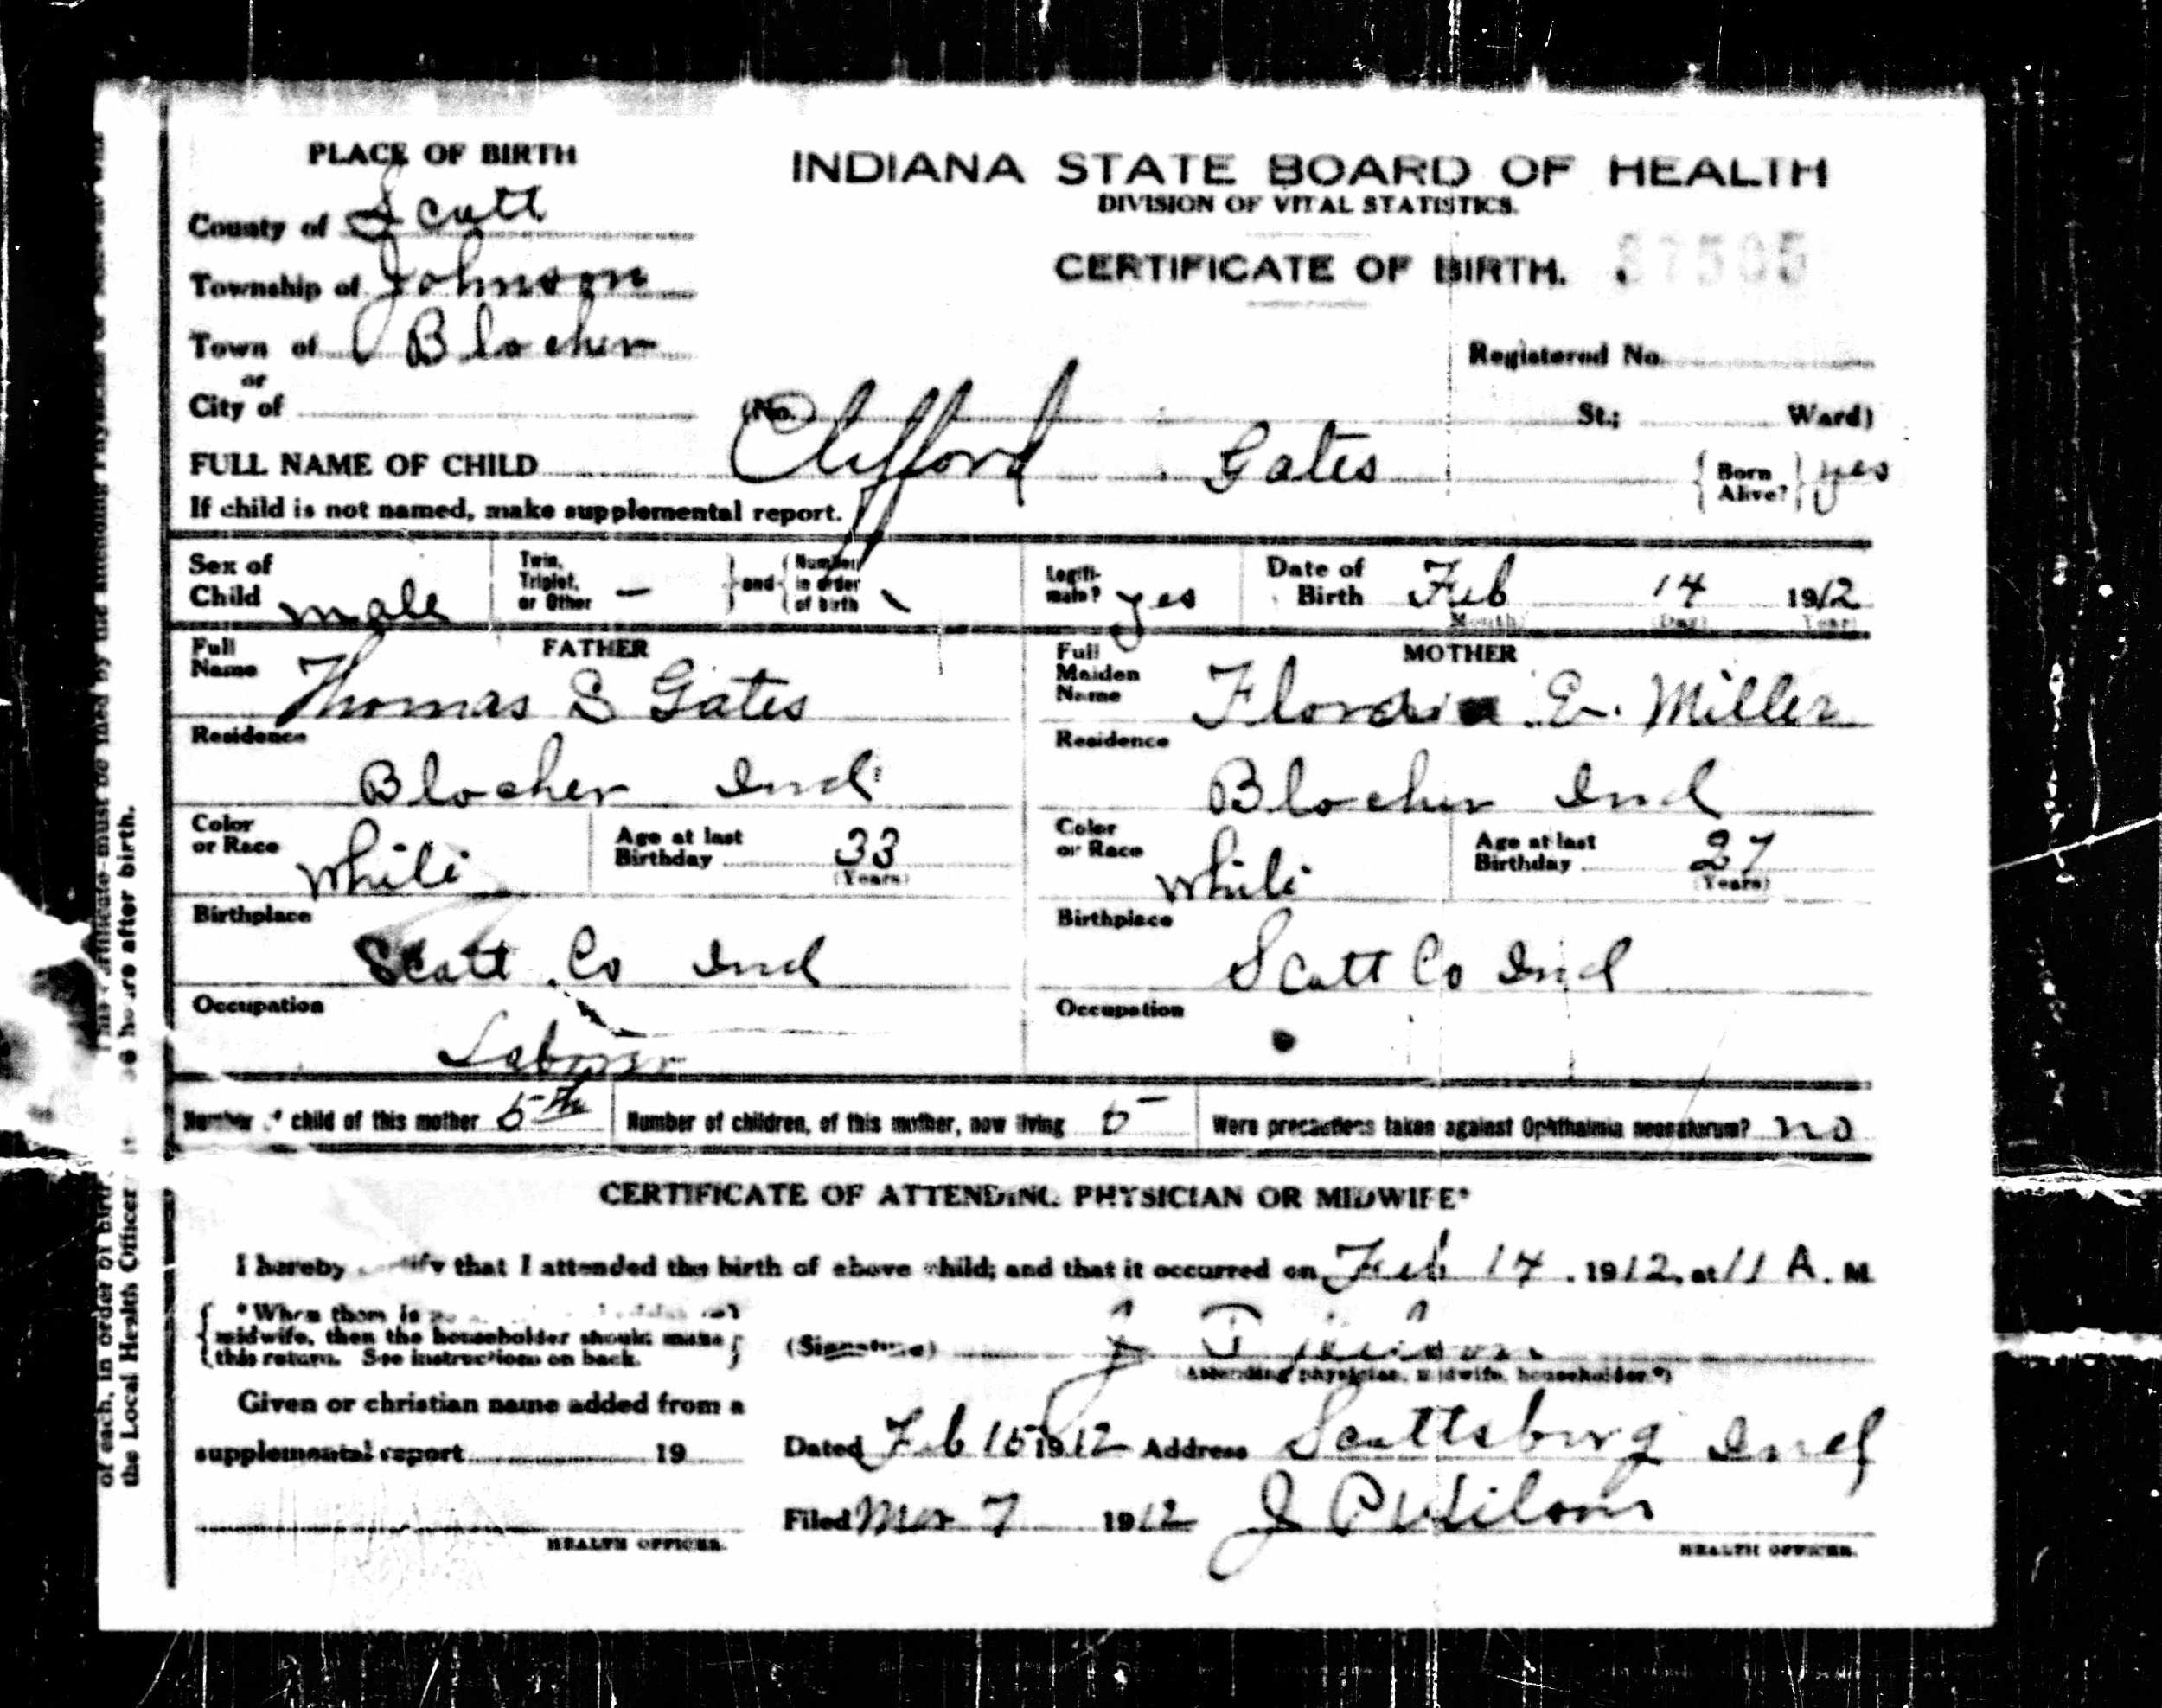 PLACE OF BIRTH
County of Scott
Township of Johnson
Town of Blocher
or
City of
INDIANA STATE BOARD OF HEALTH
DIVISION OF VITAL STATISTICS.
CERTIFICATE OF BIRTH. 37505
Registered No.
(No. St.; Ward)
FULL NAME OF CHILD Clifford Gates { Born Alive? } yes
If child is not named, make supplemental report.
Sex of Child male
Twin, Triplet, or Other - } and { Number in order of birth
Legitimate? yes
Date of Birth Feb 14 1912
(Month) (Day) (Year)
FATHER
Full Name Thomas S Gates
Residence
Blocher Ind
Color or Race White
Age at last Birthday 33
(Years)
Birthplace
Scott Co Ind
Occupation
Laborer
MOTHER
Full Maiden Name E. Miller
Residence
Blocher Ind
Color or Race White
Age at last Birthday 27
(Years)
Birthplace
Scott Co Ind
Occupation
Number of child of this mother 5th
Number of children, of this mother, now living 5
Were precautions taken against Ophthalmia neonatorum? no
CERTIFICATE OF ATTENDING PHYSICIAN OR MIDWIFE*
I hereby certify that I attended the birth of above child; and that it occurred on Feb 14, 1912, at 11 A. M
*When there is
midwife, then the householder should make
this return. See instructions on back.
(Signature) J
(Attending physician, midwife, householder.*)
Given or christian name added from a
supplemental report 19
HEALTH OFFICER.
Dated Feb 15 1912 Address Scottsburg Ind
Filed Mar 7 1912 J P Wilson
HEALTH OFFICER.
must be filed by the attending
36 hours after birth.
of each, in order of birth.
the Local Health Officer